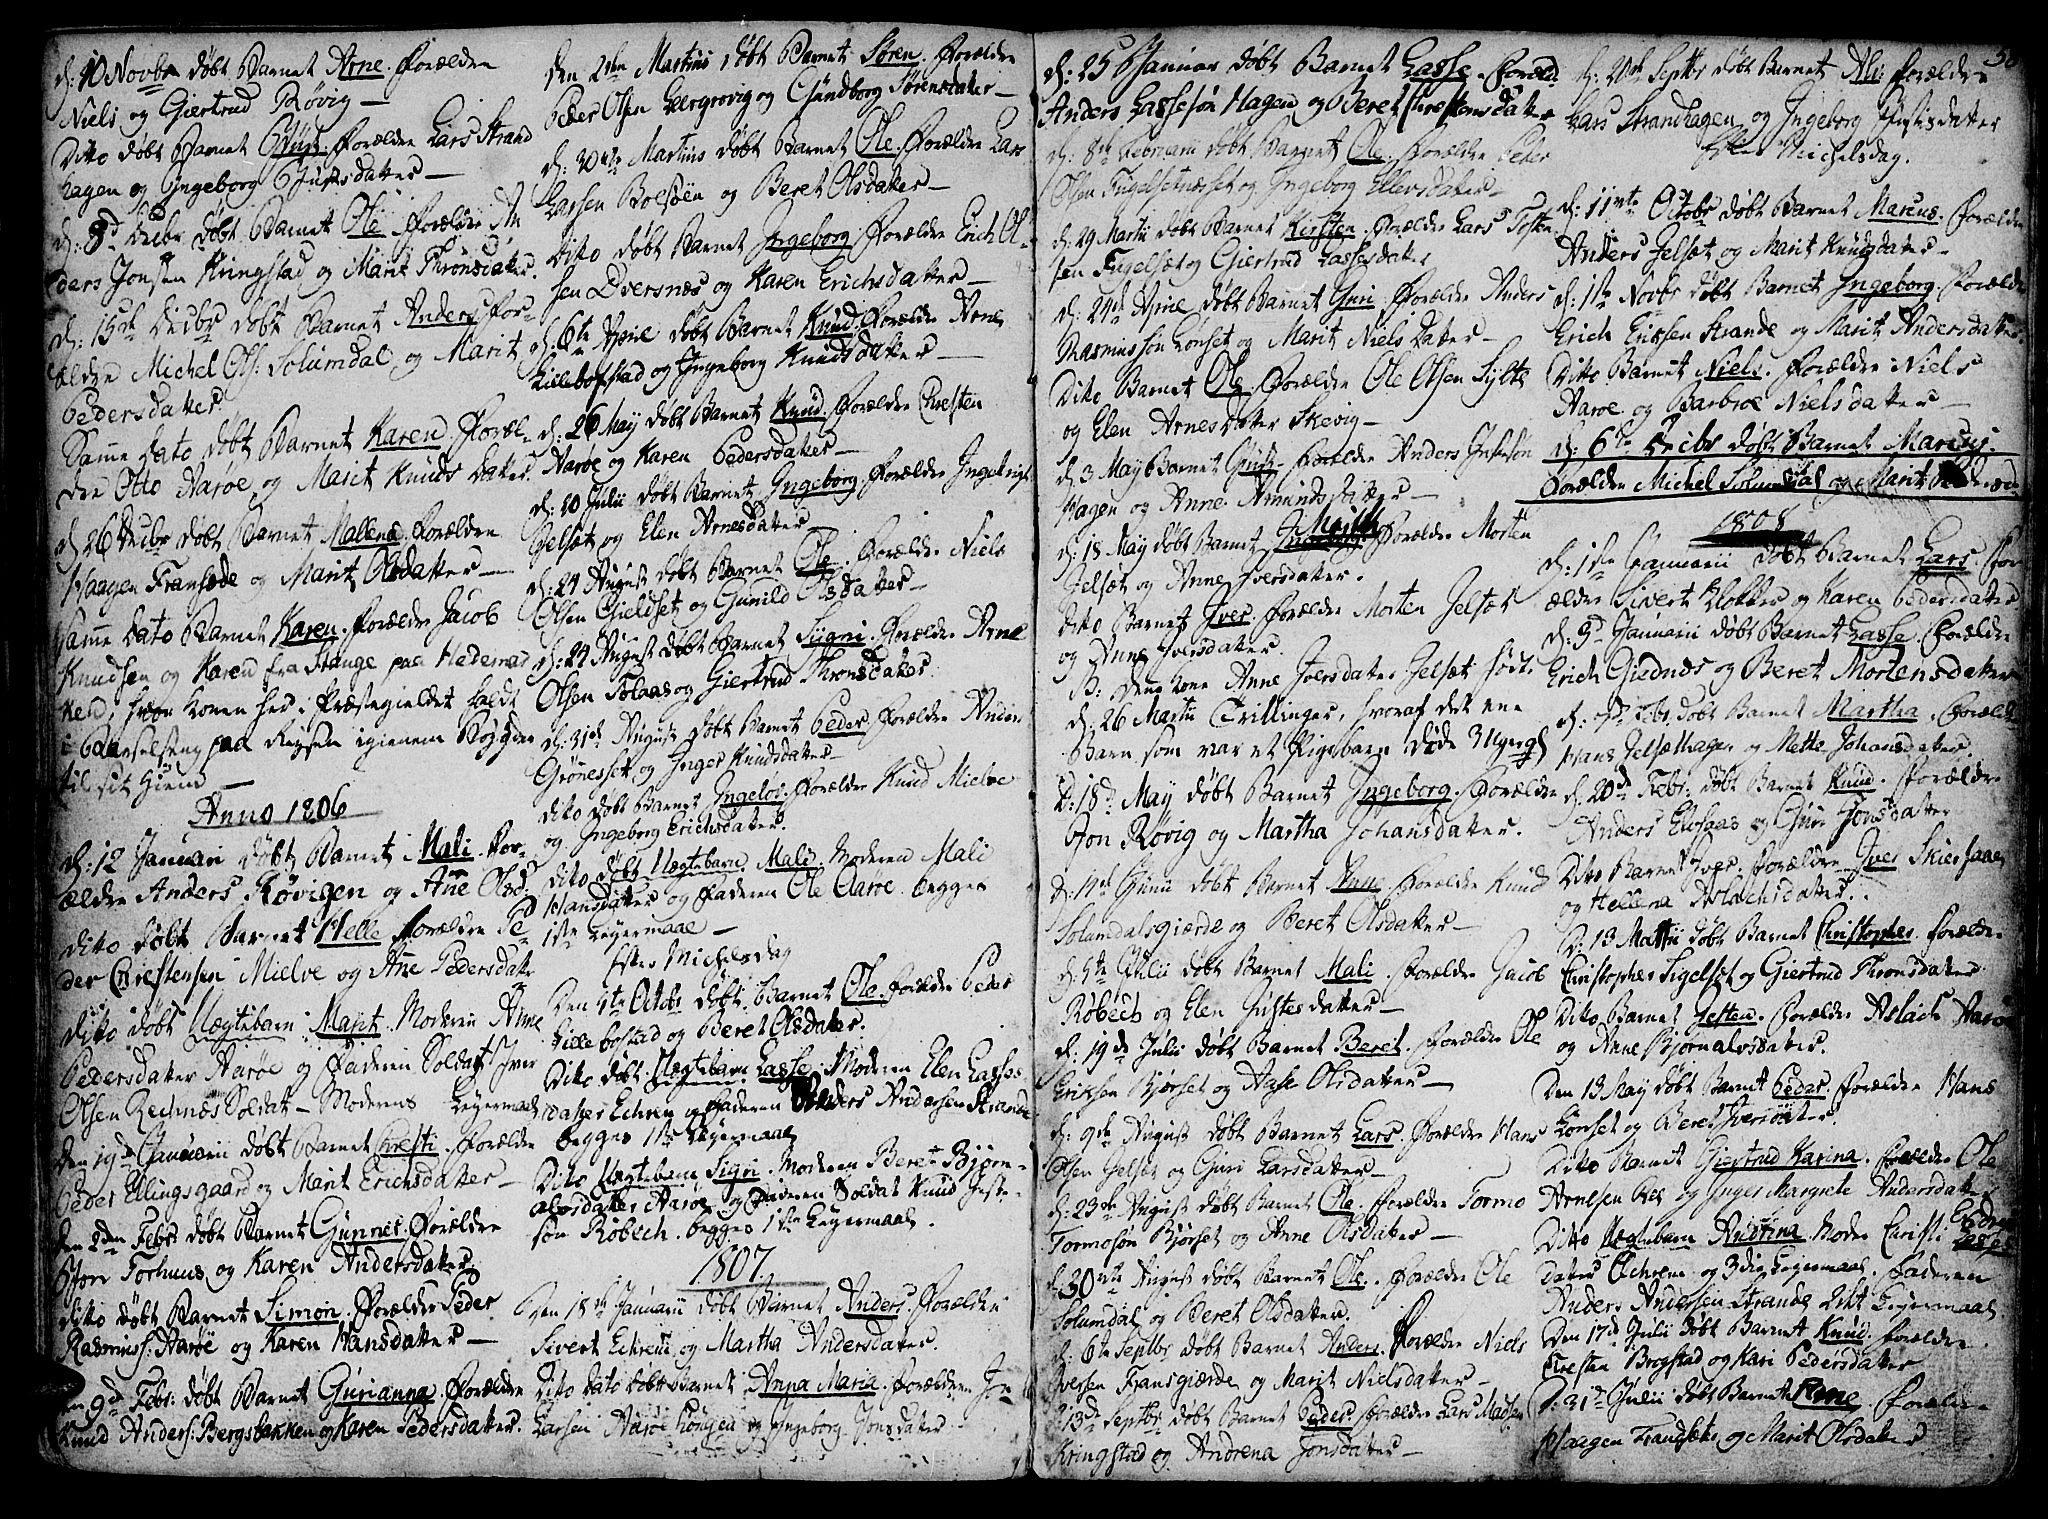 d: 10 Novbr døbt Barnet Arne. Forældre
Niels og Giertrud Røvig —
Dito døbt Barnet Forældre Lars Strand
hagen og Ingeborg Justsdatter —
d: 8d Decbr døbt Barnet Ole Forældre An
ders Jonsen Kringstad og Marit Thronsdatter.
d: 15de Decbr døbt Barnet Anders For-
ældre Michel Ols: Solumdal og Marit
Pedersdatter.
Samme Dato døbt Barnet Karen. Foræl-
dre Otto Aarøe og Marit Knuds Datter.
d 26 Decbr døbt Barnet Mallena. Forældre
Haagen Fransæde og Marit Olsdatter —
Samme Dato Barnet Karen. Forældre Jacob
Knudsen og Karen fra Stange paa Hedemar
ken, hvor Konen her i Præstegieldet holdt
i Barselseng paa Reysen igienem Bøygden
til sit Hiem —
Anno 1806
d: 12 Januari døbt Barnet Mali. For-
ældre Anders Røvigen og Ane Olsd:
Dito døbt Barnet Helle Forældre Pe
der Christensen Mielve og Ane Pedersdatr
Dito døbt Uægtebarn Marit. Moderen Anne
Pedersdatter Aarøe og Faderen Soldat Iver
Olsen Rechnæs Soldat — Moderens Leyermaal
Den 19d Januarii døbt Barnet Christi. Forældre
Peder Ellingsgaard og Marit Erichsdatter —
Den 2den Febr: døbt Barnet Gunner. Forældre
Torhuus og Karen Andersdatter.
Dito døbt Barnet Simon. Forældre Peder
Rasmuss: Aarøe og Karen Hansdatter —
Den 9d Febr: døbt Barnet Gurianna. Forældre
Knud Anders: Bergsbakken og Karen Pedersdatter.
Den 2den Martii døbt Barnet Søren. Forældre
Peder Olsen Leergrovig og Gundborg Sørensdatter —
d: 30te Martiis døbt Barnet Ole. Forældre Lars
Lassen Bolsøen og Beret Olsdatter —
Dito døbt Barnet Ingeborg. Forældre Erich Ol-
sen Dversnæs og Karen Erichsdatter —
d: 6te April døbt Barnet Knud. Forældre Arne
Lillebostad og Ingeborg Knudsdatter —
d: 26 May døbt Barnet Knud. Forældre Christen
Aarøe og Karen Pedersdatter —
d: 10 Julii døbt Barnet Ingeborg. Forældre Ingebrigt
Jelsæt og Elen Arnesdatter —
d: 24 August døbt Barnet Ole. Forældre Niels
Olsen Gieldset og Gunild Olsdatter —
d: 24 August døbt Barnet Sigri. Forældre Arne
Olsen Solaas og Giertrud Thronsdatter.
d: 31st August døbt Barnet Peder. Forældre Anders
Grønesset og Inger Knudsdatter —
Dito døbt Barnet Forældre Knud Mielve
og Ingeborg Erichsdatter.
Dito døbt Uægtebarn Mali. Moderen Mali
Hansdatter og Faderen Ole Aarøe. begges
1ste Leyermaal —
Efter Michelsdag
Den 4te Octobr døbt Barnet Ole. Forældre Peder
Lillebostad og Beret Olsdatter.
Dito døbt Uægtebarn Lasse. Moderen Elen Lasses
datter Echren og Faderen Anders Andersen Strande
begges 1ste Leyermaal
Dito Uægtebarn Sigri. Moderen Beret Bjørn-
alvsdatter Aarøe og Faderen Soldat Knud Juste-
sen Røbech. begges 1ste Leyermaal.
1807
Den 18de Januarii døbt Barnet Anders. Forældre
Sivert Echren og Martha Andersdatter.
Dito Dato døbt Barnet Anna Maria. Forældre Jon
Larsen Aarøe Longen og Ingeborg Jonsdatter —
d: 25 Januar døbt Barnet Lasse. Foræld:
Anders Lassesøn Hagen og Beret Christensdatter
d: 8de Februarii døbt Barnet Ole. Forældre Peder
Olsen Fugelsetnæset og Ingeborg Ellevsdatter —
d: 29 Martii døbt Barnet Kirsten. Forældre Lars Tosten-
sen Fugelsæt og Giertrud Lassesdatter
d: 24d April døbt Barnet Guri. Forældre Anders
Rasmusson Lønset og Marit Niels Datter —
Dito Barnet Ole. Forældre Ole Olsen Sylte
og Elen Arnes Datter Skevig —
d: 3 May Barnet Forældre Anders
Hagen og Anne Amundsdatter —
d: 18 May døbt Barnet Marith Forældre Morten
Jelsæt og Anne Iversdatter.
Dito Barnet Iver. Forældre Morten Jelsæt
og Anne Iversdatter.
B: Denne Kone Anne Iversdatter Jelsæt fødte
d: 26 Martii Trillinger, hvoraf det ene
Barn som var et Pigebarn døde
D: 18d May døbt Barnet Ingeborg. Forældre
Jon Røvig og Martha Johansdatter.
d: 14d Junii døbt Barnet Anne. Forældre Knud
Solumdalsgiærde og Beret Olsdatter —
d: 5te Julii døbt Barnet Mali. Forældre Jacob
Røbech og Elen Justesdatter —
d: 19de Julii døbt Barnet Beret. Forældre Ole
Erichsen Bjørset og Aase Olsdatter —
d: 9de August døbt Barnet Lars. Forældre Hans
Olsen Jelsæt og Guri Larsdatter —
d: 23de August døbt Barnet Ole. Forældre Tormo
Tormosøn Bjørset og Anne Olsdatter —
d: 30te August døbt Barnet Ole. Forældre Ole
Solumdal og Beret Olsdatter.
d: 6te Septbr døbt Barnet Anders. Forældre Niels
Iversen Fransgiærde og Marit Nielsdatter —
d: 13de Septbr døbt Barnet Peder. Forældre Lars Madsen
Kringstad og Andrena Jonsdatter —
d: 20de Septbr døbt Barnet Forældre
Lars Strandhagen og Ingeborg Justisdatter
Efter Michelsdag.
d: 11te Octobr døbt Barnet Marcus. Forældre
Anders Jelsæt og Marit Knudsdatter —
d: 1ste Novbr døbt Barnet Ingeborg. Forældre
Erich Ericksen Strande og Marit Andersdatter.
Dito Barnet Niels. Forældre Niels
Aarøe og Barbroe Nielsdatter —
d: 6te Decbr døbt Barnet Marcus.
Forældre Michel Solumsdal og Marit Pedersd:
1808
d: 1ste Januarii døbt Barnet Lars. For-
ældre Sivert Klokker og Karen Pedersdatter
d: 3d Januarii døbt Barnet Lasse. Forældre
Erich Giednæs og Beret Mortensdatter
d: 7de Febr: døbt Barnet Martha. Foræld:
Hans Jelsæthagen og Mette Johansdatter.
d: 20de Febr: døbt Barnet Knud. Forældre
Anders Elvsaas og Guri Jonsdatter
Dito Barnet Iver. Forældre Iver Skiersaae
og Hellena Aslachsdatter.
D: 13 Martii døbt Barnet Christopher. Forældre
Christopher Sigelset og Giertrud Thronsdatter
Dito Barnet Josten. Forældre Aslach Aarøe
og Anne Bjørnalvsdatter.
Den 13 May døbt Barnet Peder. Forældre Hans
Lønset og Beret Iversdatter.
Dito Barnet Giertrud Karina. Forældre Ole
Arnesen Ræs og Inger Margrete Andersdatter
Dito Uægtebarn Andrina. Moder Christi Endres
datter Øchren og 3die Leyermaal. Faderen
Anders Andersen Strande 2det Leyermaal
Den 17d Julii døbt Barnet Knud. Forældre
Christen Brogstad og Kari Pedersdatter
D: 31te Julii døbt Barnet Arne. Forældre
Haagen Fransæde og Marit Olsdatter.